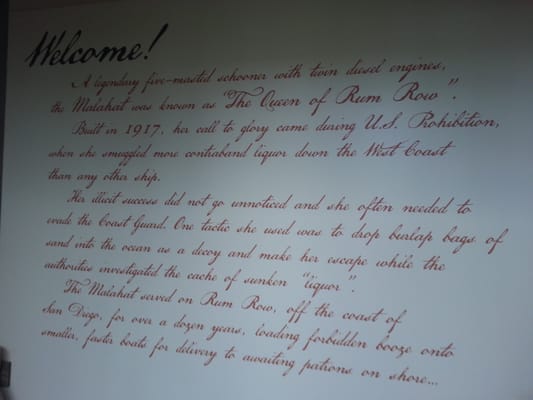 Welcome!
A legendary five-masted schooner with twin diesel engines,
the Malahat was known as "The Queen of Rum Row".
Built in 1917, her call to glory came during U.S. Prohibition,
when she smuggled more contraband liquor down the West Coast
than any other ship.
Her illicit success did not go unnoticed and she often needed to
evade the Coast Guard. One tactic she used was to drop burlap bags of
sand into the ocean as a decoy and make her escape while the
authorities investigated the cache of sunken "liquor".
The Malahat served on Rum Row, off the coast of
San Diego, for over a dozen years, loading forbidden booze onto
smaller, faster boats for delivery to awaiting patrons on shore...